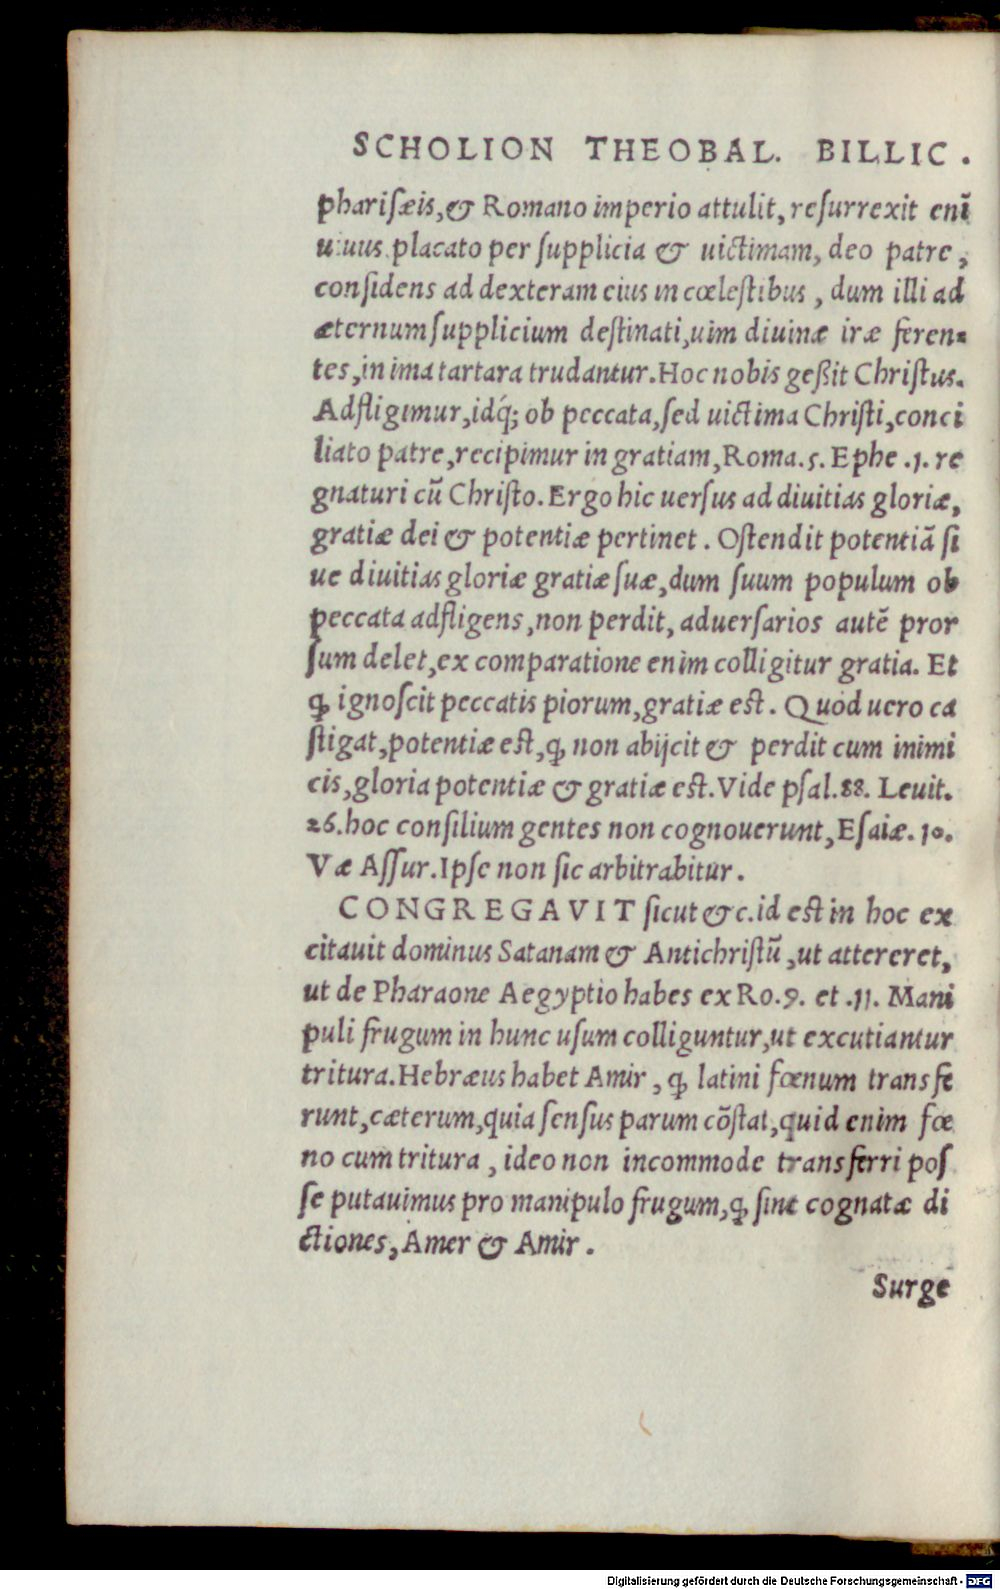 SCHOLION THEOBAL. BILLIC.
phariſæis, & Romano imperio attulit, reſurrexit enĩ
uiuus placato per ſupplicia & uictimam, deo patre,
conſidens ad dexteram eius in cœleſtibus, dum illi ad
æternum ſupplicium deſtinati, uim diuinæ iræ feren-
tes, in ima tartara trudantur. Hoc nobis geßit Chriſtus.
Adfligimur, idq́; ob peccata, ſed uictima Chriſti, conci
liato patre, recipimur in gratiam, Roma. 5. Ephe. 1. re
gnaturi cũ Chriſto. Ergo hic uerſus ad diuitias gloriæ,
gratiæ dei & potentiæ pertinet. Oſtendit potentiã ſi
ue diuitias gloriæ gratiæ ſuæ, dum ſuum populum ob
peccata adfligens, non perdit, aduerſarios autẽ pror
ſum delet, ex comparatione enim colligitur gratia. Et
ꝙ ignoſcit peccatis piorum, gratiæ eſt. Quod uero ca
ſtigat, potentiæ eſt, ꝙ non abijcit & perdit cum inimi
cis, gloria potentiæ & gratiæ eſt. Vide pſal. 88. Leuit.
26. hoc conſilium gentes non cognouerunt, Eſaiæ. 10.
Væ Aſſur. Ipſe non ſic arbitrabitur.
CONGREGAVIT ſicut &c. id eſt in hoc ex
citauit dominus Satanam & Antichriſtũ, ut attereret,
ut de Pharaone Aegyptio habes ex Ro. 9. et. 11. Mani
puli frugum in hunc uſum colliguntur, ut excutiantur
tritura. Hebræus habet Amir, ꝙ latini fœnum transfe
runt, cæterum, quia ſenſus parum cõſtat, quid enim fœ
no cum tritura, ideo non incommode transferri poſ
ſe putauimus pro manipulo frugum, ꝙ ſint cognatæ di
ctiones, Amer & Amir.
Surge
Digitalisierung gefördert durch die Deutsche Forschungsgemeinschaft - DFG